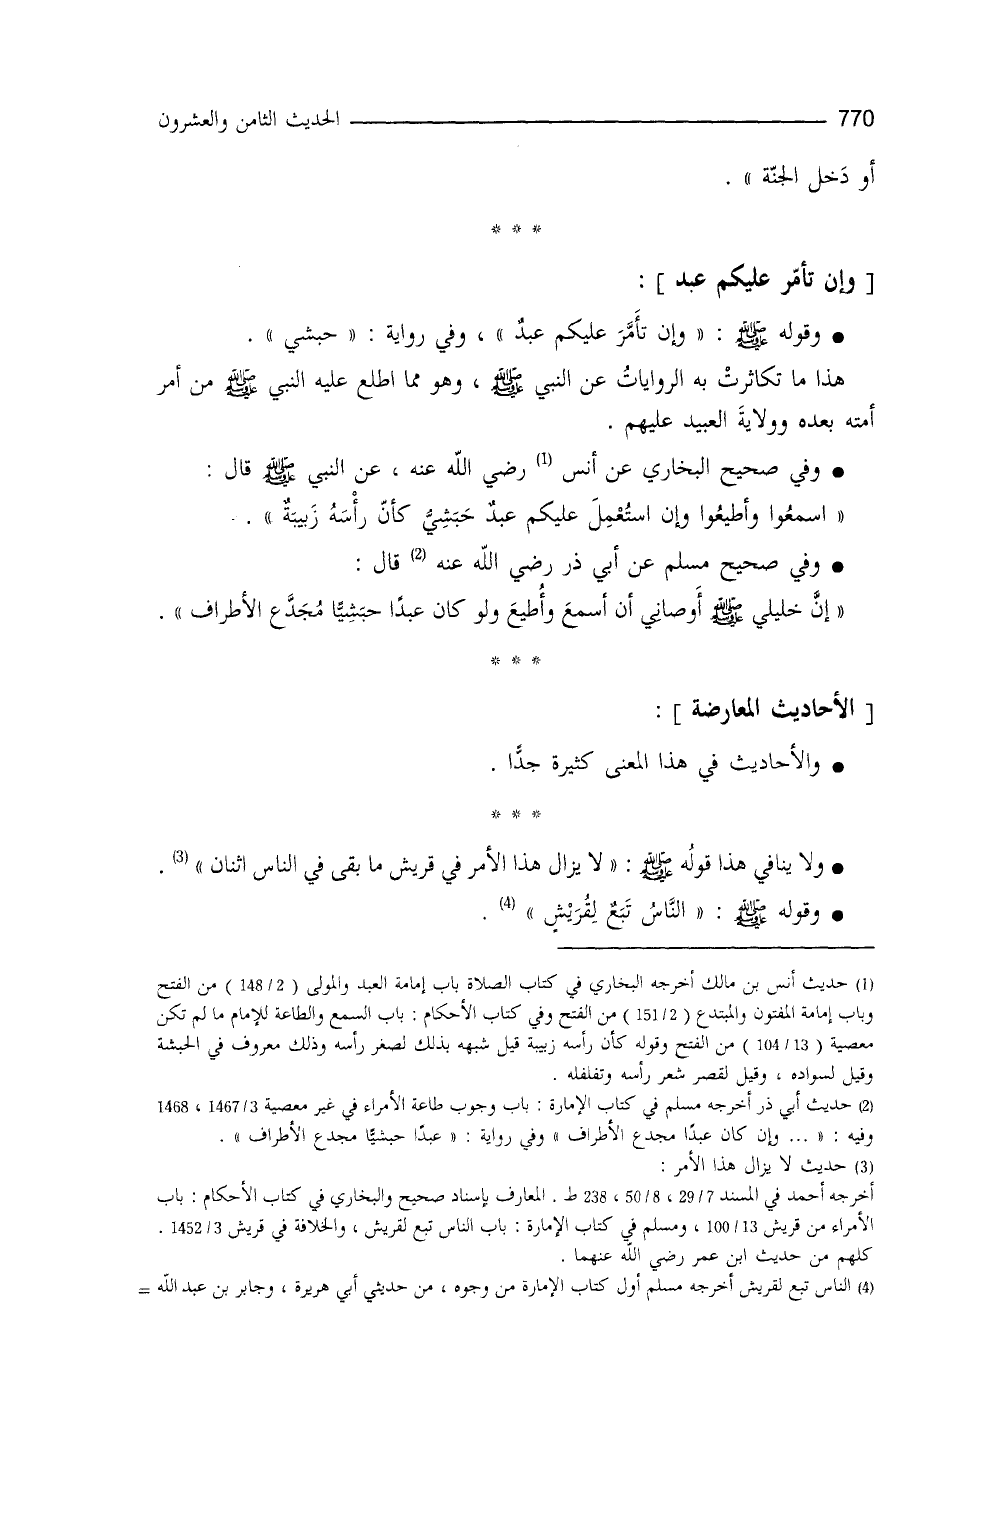 770 ــــــــــــ الحديث الثامن والعشرون
أو دَخل الجنّة » .
* * *
[ وإن تأمّر عليكم عبد ] :
● وقوله ﷺ : « وإن تأَمَّرَ عليكم عبدٌ » ، وفي رواية : « حبشي » .
هذا ما تكاثرتْ به الرواياتُ عن النبي ﷺ ، وهو مما اطلع عليه النبي ﷺ من أمر
أمته بعده وولايةَ العبيد عليهم .
● وفي صحيح البخاري عن أنس (1) رضي اللّه عنه ، عن النبي ﷺ قال :
« اسمعُوا وأطيعُوا وإن استُعْمِلَ عليكم عبدٌ حَبَشِيٌّ كأنّ رأْسَهُ زَبيبَةٌ » .
● وفي صحيح مسلم عن أبي ذر رضي اللّه عنه (2) قال :
« إنَّ خليلي ﷺ أَوصانِي أن أسمعَ وأُطيعَ ولو كان عبدًا حبَشِيًّا مُجَدَّع الأطراف » .
* * *
[ الأحاديث المعارضة ] :
● والأحاديث في هذا المعنى كثيرة جدًّا .
* * *
● ولا ينافي هذا قولُه ﷺ : « لا يزال هذا الأمر في قريش ما بقى في الناس اثنان » (3) .
● وقوله ﷺ : « النَّاسُ تَبَعٌ لِقُرَيْشٍ » (4) .
(1) حديث أنس بن مالك أخرجه البخاري في كتاب الصلاة باب إمامة العبد والمولى ( 2/ 148 ) من الفتح
وباب إمامة المفتون والمبتدع ( 2/ 151 ) من الفتح وفي كتاب الأحكام : باب السمع والطاعة للإمام ما لم تكن
معصية ( 13/ 104 ) من الفتح وقوله كأن رأسه زبيبة قيل شبهه بذلك لصغر رأسه وذلك معروف في الحبشة
وقيل لسواده ، وقيل لقصر شعر رأسه وتفلفله .
(2) حديث أبي ذر أخرجه مسلم في كتاب الإمارة : باب وجوب طاعة الأمراء في غير معصية 3/ 1467 ، 1468
وفيه : « ... وإن كان عبدًا مجدع الأطراف » وفي رواية : « عبدًا حبشيًّا مجدع الأطراف » .
(3) حديث لا يزال هذا الأمر :
أخرجه أحمد في المسند 7/ 29 ، 8/ 50 ، 238 ط . المعارف بإسناد صحيح والبخاري في كتاب الأحكام : باب
الأمراء من قريش 13/ 100 ، ومسلم في كتاب الإمارة : باب الناس تبع لقريش ، والخلافة في قريش 3/ 1452 .
كلهم من حديث ابن عمر رضي اللّه عنهما .
(4) الناس تبع لقريش أخرجه مسلم أول كتاب الإمارة من وجوه ، من حديثي أبي هريرة ، وجابر بن عبد اللّه =